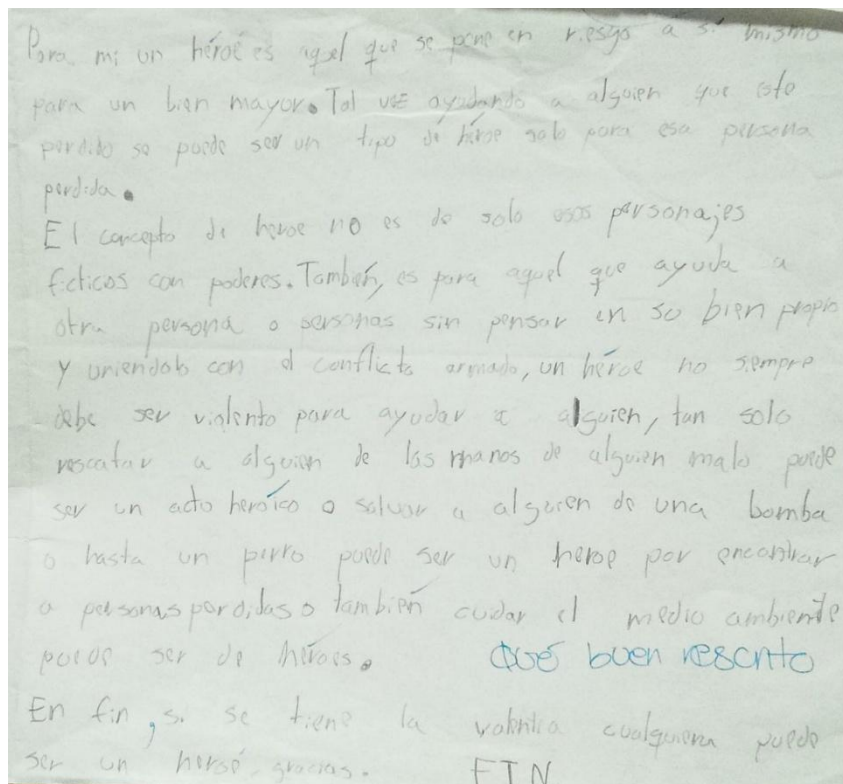 Para mi un héroe es aquel que se pone en riesgo a si mismo
para un bien mayor. Tal vez ayudando a alguien que este
perdido se puede ser un tipo de héroe solo para esa persona
perdida.
El concepto de heroe no es de solo esos personajes
ficticos con poderes. También, es para aquel que ayuda a
otra persona o personas sin pensar en su bien propio
y uniendolo con el conflicto armado, un héroe no siempre
debe ser violento para ayudar a alguien, tan solo
rescatar a alguien de las manos de alguien malo puede
ser un acto heroíco o salvar a alguien de una bomba
o hasta un perro puede ser un heroe por encontrar
a personas perdidas o también cuidar el medio ambiente
puede ser de héroes. Qué buen rescrito
En fin, si se tiene la valentia cualquiera puede
ser un heroé, gracias. FIN